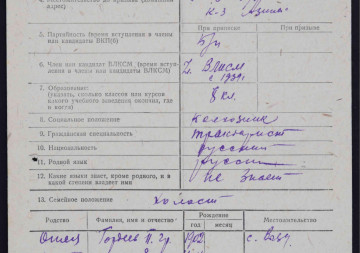 адрес)
к-з
5. Партийность (время вступления в члены или кандидаты ВКП(б)
При приписке
При призыве
б/п
6. Член или кандидат ВЛКСМ (время вступления в члены или кандидаты ВЛКСМ)
ВЛКСМ
с 1939 г.
7. Образование:
(указать, сколько классов или курсов какого учебного заведения окончил, где и когда)
8 кл.
8. Социальное положение
колхозник
9. Гражданская специальность
тракторист
10. Национальность
русский
11. Родной язык
русский
12. Какие языки знает, кроме родного, и в какой степени владеет ими
не знает
13. Семейное положение
холост
Родство
Фамилия, имя и отчество
Рождения
год
месяц
Местожительство
Отец
Гордеев П. Гр.
1902
с.